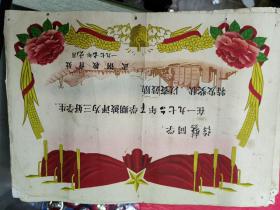 同学:
在一九七二年下学期被评为三好学生
特发奖状 以资鼓励
武钢教育处
一九七 年 月